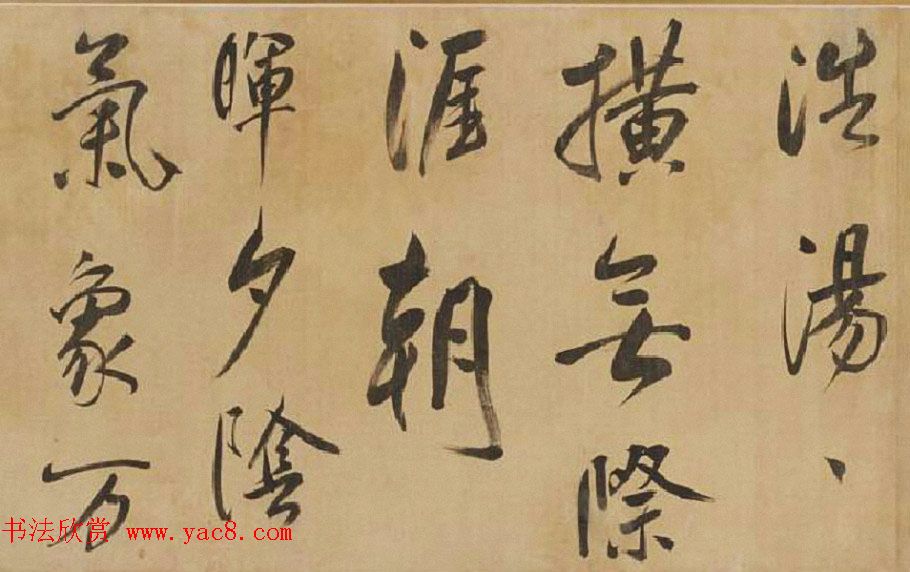 浩湯、
横無際
涯朝
暉夕陰
氣象万
书法欣赏 www.yac8.com